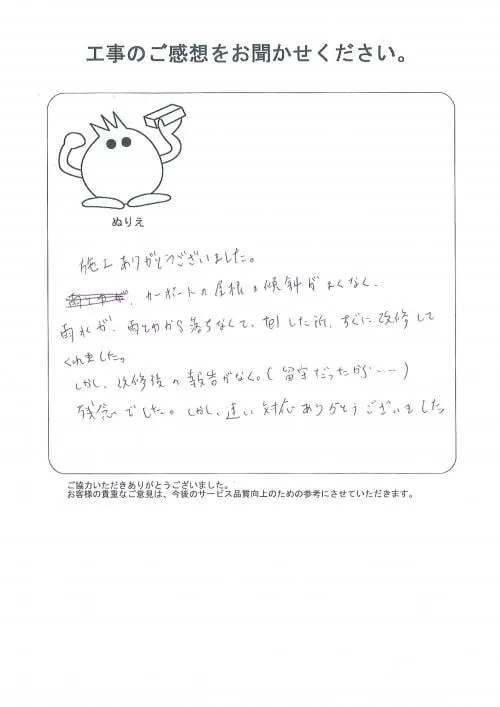 工事のご感想をお聞かせください。
ぬりえ
施工ありがとうございました。
カーポートの屋根の傾斜がよくなく、
雨水が、雨とゆから落ちなくて、telした所、すぐに改修して
くれました。
しかし、改修後の報告がなく。(留守だったから……)
残念でした。しかし、速い対応ありがとうございました
ご協力いただきありがとうございました。
お客様の貴重なご意見は、今後のサービス品質向上のための参考にさせていただきます。